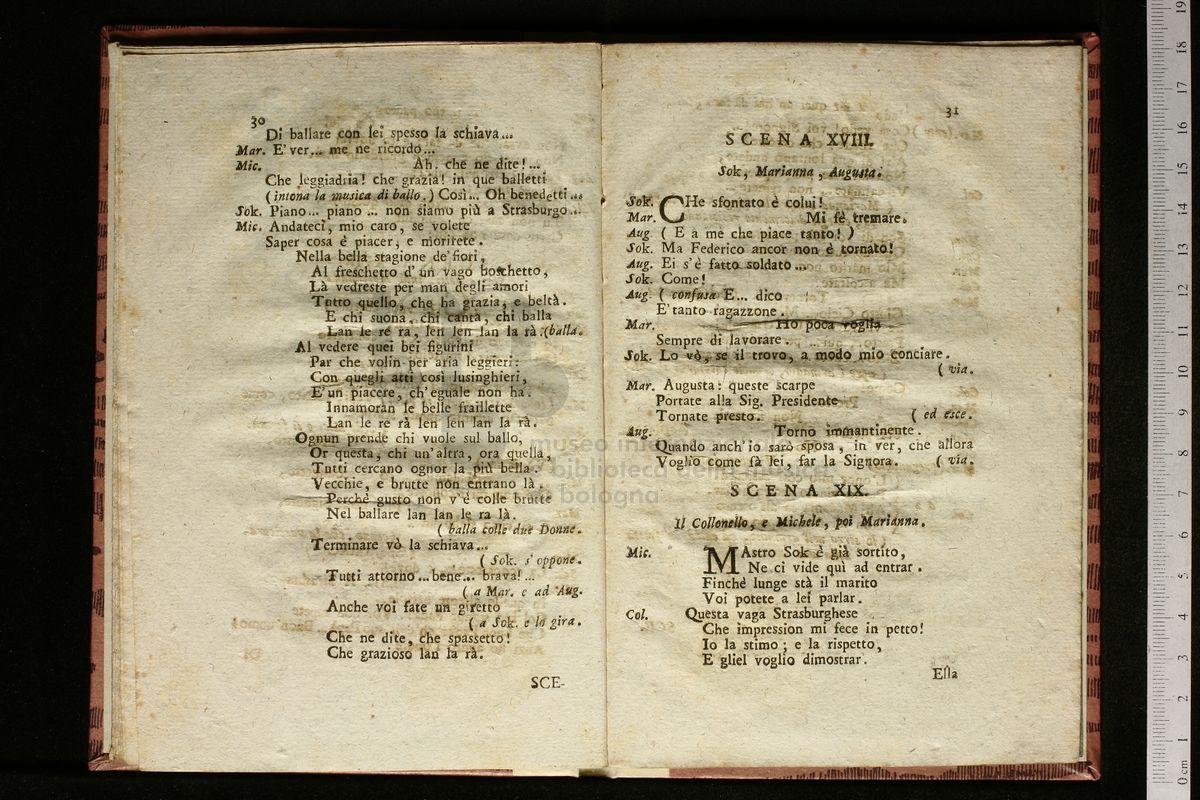 30
Di ballare con lei spesso la schiava...
Mar. E' ver... me ne ricordo...
Mic. Ah, che ne dite!...
Che leggiadria! che grazia! in que balletti
(intona la musica di ballo.) Così... Oh benedetti...
Sok. Piano... piano... non siamo più a Strasburgo...
Mic. Andateci, mio caro, se volete
Saper cosa è piacer, e morirete.
Nella bella stagione de' fiori,
Al freschetto d' un vago boschetto,
Là vedreste per man degli amori
Tutto quello, che ha grazia, e beltà.
E chi suona, chi canta, chi balla
Lan le re ra, len len lan la rà. (balla.
Al vedere quei bei figurini
Par che volin per aria leggieri:
Con quegli atti così lusinghieri,
E' un piacere, ch' eguale non ha.
Innamoran le belle fraillette
Lan le re rà len len lan la rà.
Ognun prende chi vuole sul ballo,
Or questa, chi un' altra, ora quella,
Tutti cercano ognor la più bella.
Vecchie, e brutte non entrano là.
Perchè gusto non v' è colle brutte
Nel ballare lan lan le ra là.
( balla colle due Donne.
Terminare vò la schiava...
( Sok. s' oppone.
Tutti attorno... bene... brava!...
( a Mar. e ad Aug.
Anche voi fate un giretto
( a Sok. e lo gira.
Che ne dite, che spassetto!
Che grazioso lan la rà.
SCE-
31
SCENA XVIII.
Sok, Marianna, Augusta.
Sok. CHe sfontato è colui!
Mar. Mi fè tremare.
Aug. ( E a me che piace tanto! )
Sok. Ma Federico ancor non è tornato!
Aug. Ei s' è fatto soldato...
Sok. Come!
Aug. ( confusa E... dico
E' tanto ragazzone.
Mar. Ho poca voglia
Sempre di lavorare.
Sok. Lo vò, se il trovo, a modo mio conciare.
( via.
Mar. Augusta: queste scarpe
Portate alla Sig. Presidente
Tornate presto. ( ed esce.
Aug. Torno immantinente.
Quando anch' io sarò sposa, in ver, che allora
Voglio come fà lei, far la Signora. ( via.
SCENA XIX.
Il Collonello, e Michele, poi Marianna.
Mic. MAstro Sok è già sortito,
Ne ci vide quì ad entrar.
Finchè lunge stà il marito
Voi potete a lei parlar.
Col. Questa vaga Strasburghese
Che impression mi fece in petto!
Io la stimo; e la rispetto,
E gliel voglio dimostrar.
Essa
museo
biblioteca della musica
bologna